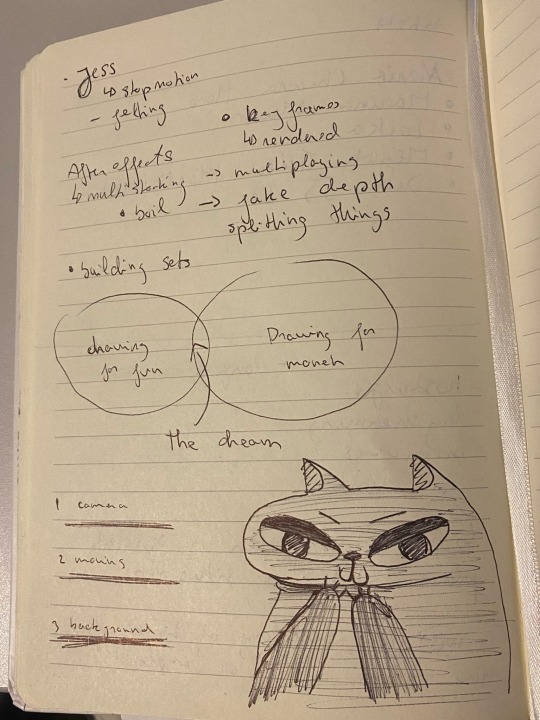 • Jess
↳ stopmotion
- felting
• key frames
↳ rendered
After effects
↳ multistacking -> multiplaying
• boil -> fake depth
splitting things
• building sets
drawing
for fun
Drawing for
moneh
The dream
1 camera
2 moving
3 background